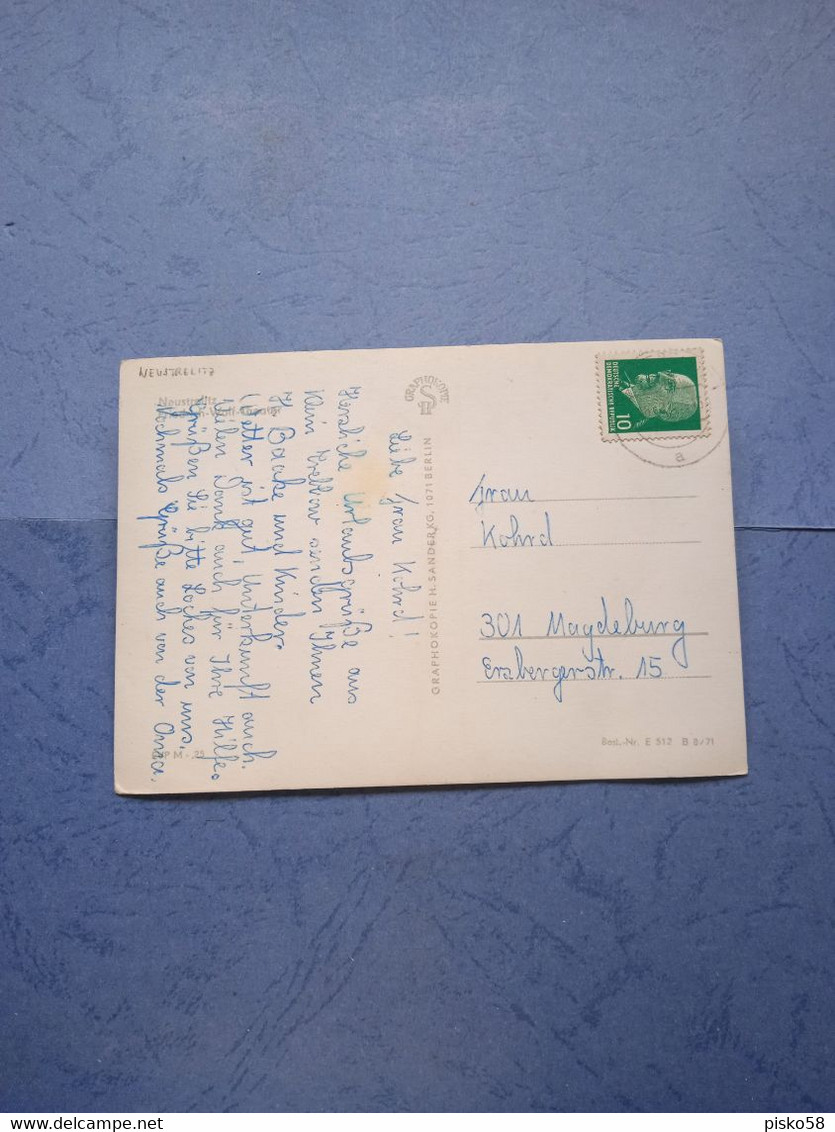 NEUSTRELITZ
Neustrelitz
Friedrich-Wolf-Theater
Liebe Frau Kohrd!
Herzliche Urlaubsgrüße aus
Klein Trebbow senden Ihnen
H. Baake und Kinder.
Wetter ist gut, Unterkunft auch.
Vielen Dank auch für Ihre Hilfe.
Grüßen Sie bitte Loches von uns.
Nochmals Grüße auch von der Oma.
EVP M -,25
GRAPHOKOPIE
GRAPHOKOPIE H. SANDER KG, 1071 BERLIN
DEUTSCHE
DEMOKRATISCHE REPUBLIK
10
a
Frau
Kohrd
301 Magdeburg
Erzbergerstr. 15
Best.-Nr. E 512 B 8/71
delcampe.net
pisko58